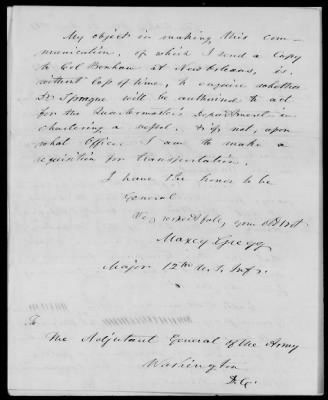 My object in making this com-
munication, of which I send a copy
to Col Bonham at New Orleans, is,
without loss of time, to enquire whether
Dr Sprague will be authorized to act
for the Quartermaster's Department in
chartering a vessel. & if not, upon
what Officer I am to make a
requisition for transportation.
I have the honor to be
General
Very respectfully your obt svt
Maxcy Gregg
Major 12th U.S. Infy.
To
The Adjutant General of the Army
Washington
D.C.